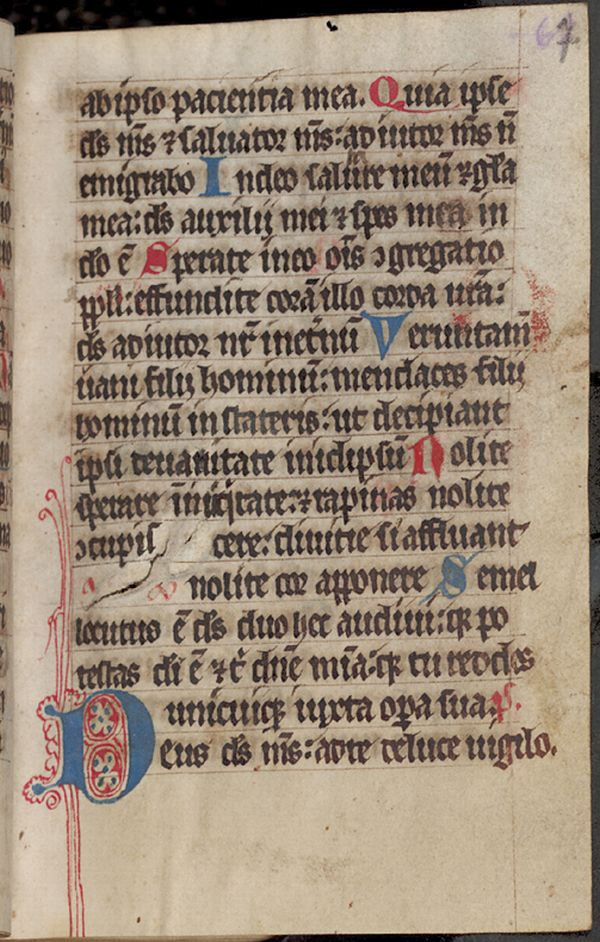 67
ab ipso pacientia mea. Quia ipse
ds̄ ms̄ ⁊ saluator ms̄: adiutor ms̄ n̄
emigrabo In deo salut̄e meū ⁊ gła
mea: ds̄ auxilij mei ⁊ spes mea in
do ē Sperate in eo oīs ꝯgregatio
ppłi: effundite corā illo corda ur̄a:
ds̄ adiutor nr̄ in et̄nū Veruntam̄
uani filij hominū: mendaces filij
hominū in stateris: ut decipiant
ipsi de uanitate in idipsū Nolite
sperare in iniq̄tate: ⁊ rapinas nolite
ꝯcupis cere: diuitie si affluant
nolite cor apponere Semel
locutus ē ds̄ duo hec audiui: qꝫ po
testas di ē ⁊ t̄ dn̄e mīa: qꝫ tu reddes
unicuiqꝫ iuxta oꝑa sua. p̄s.
Deus ds̄ ms̄: ad te de luce uigilo.